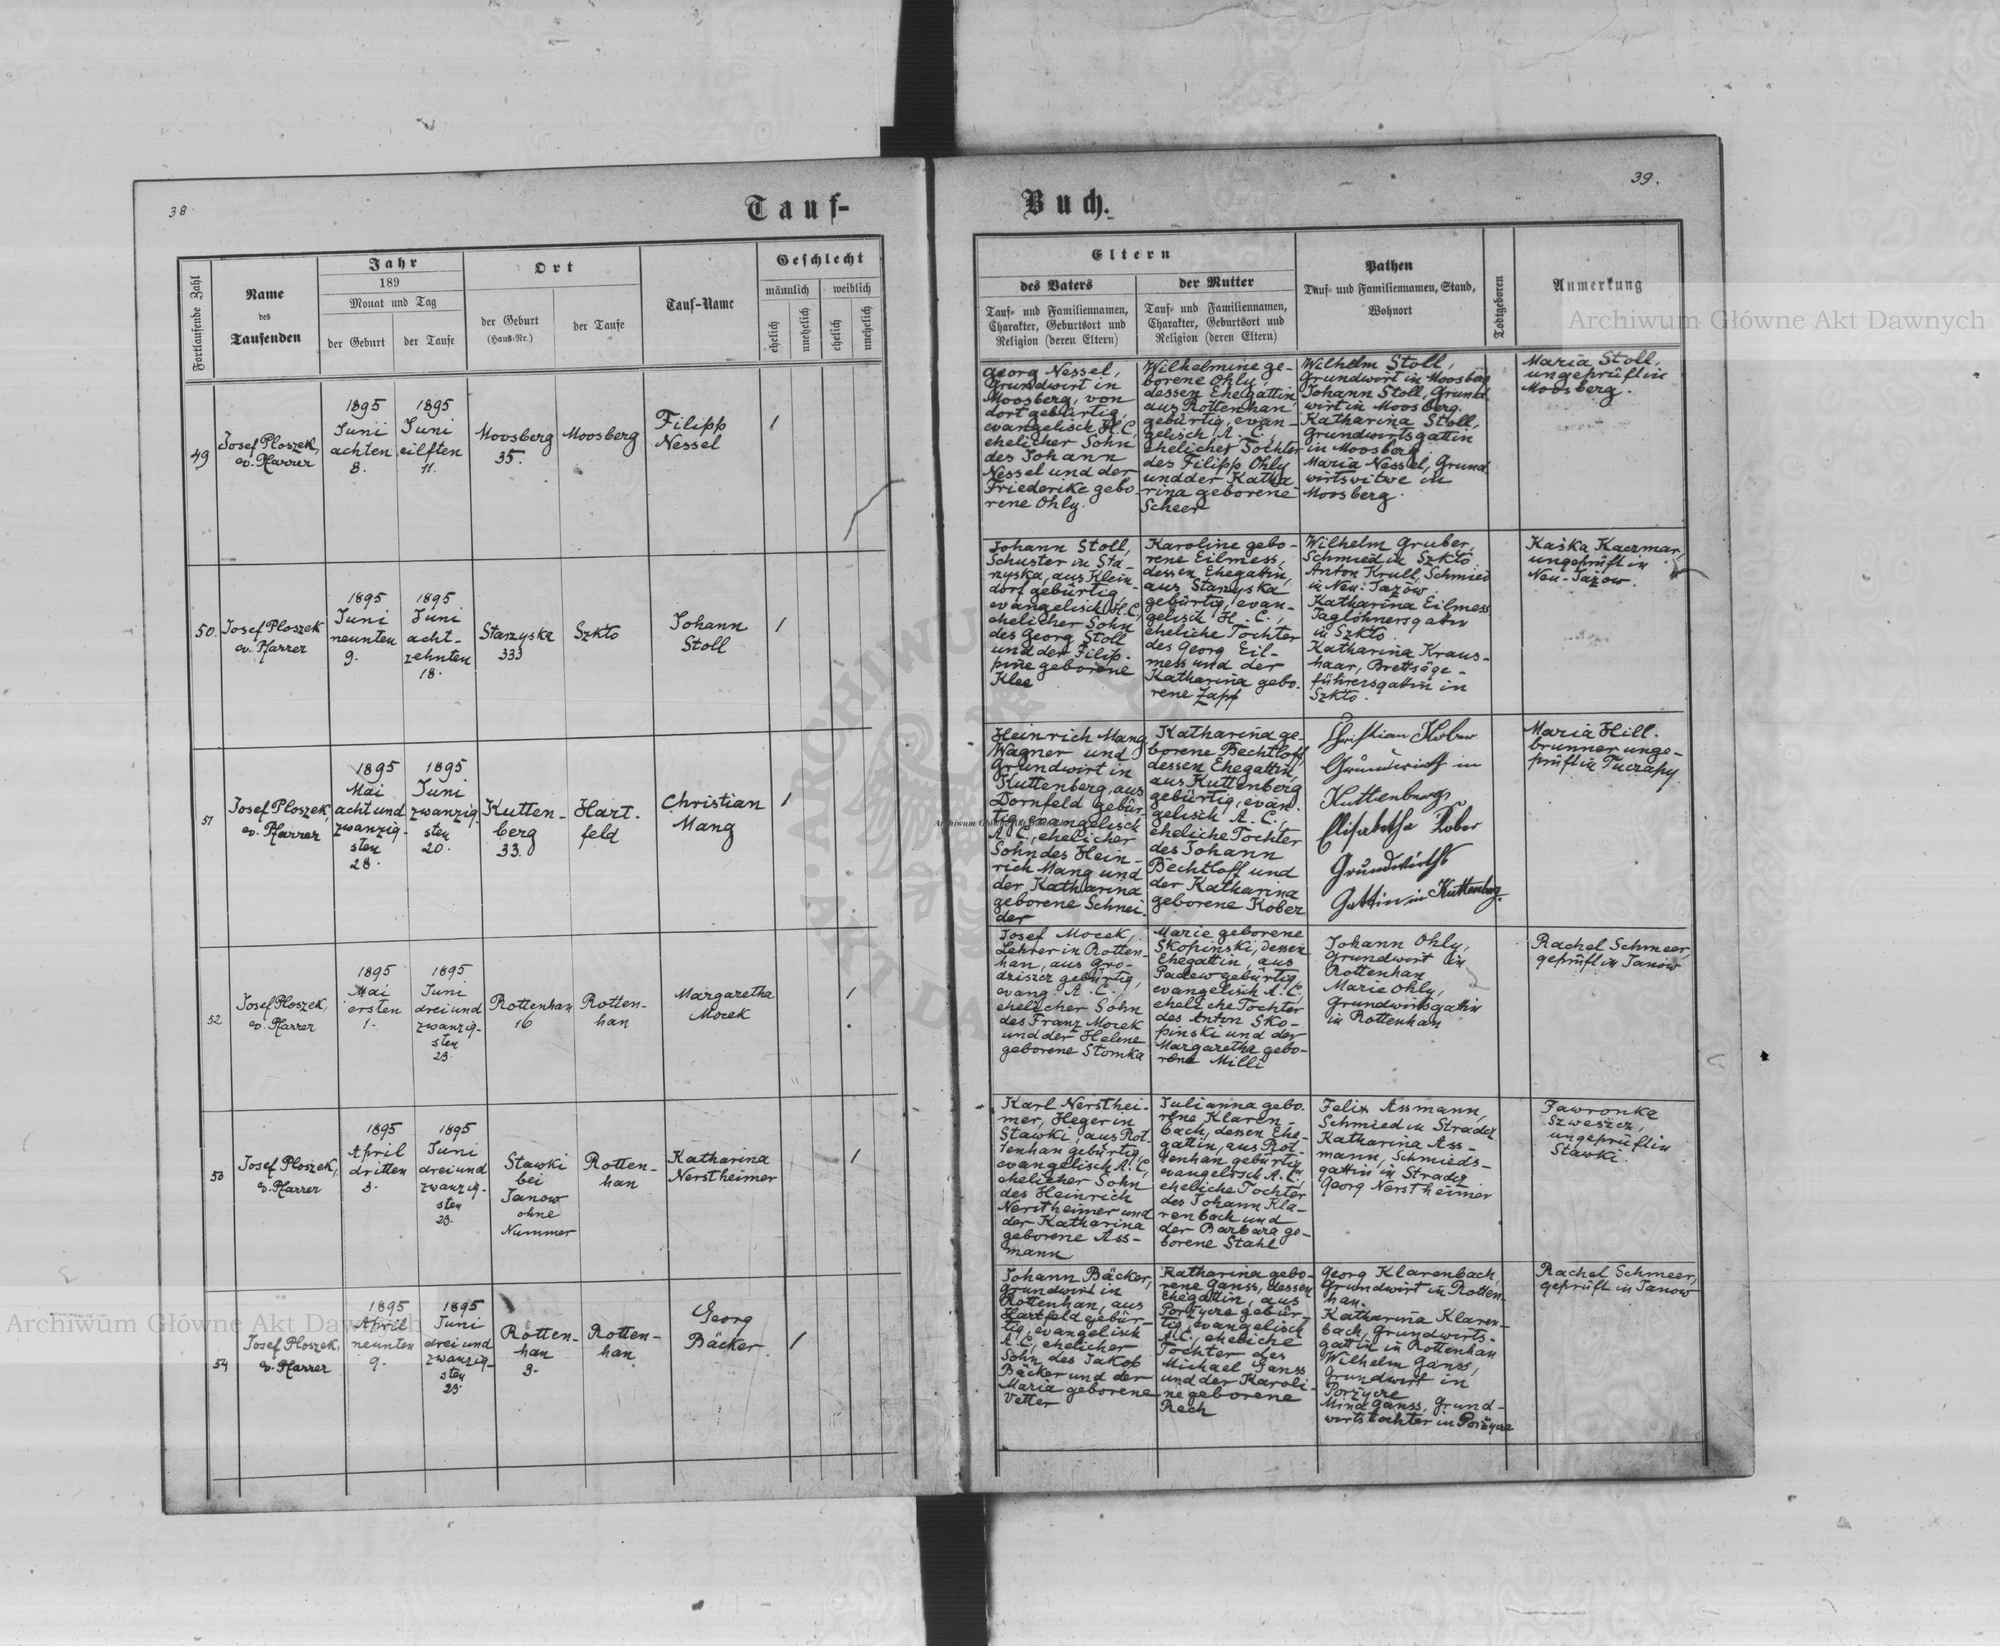 38
39.
Tauf-
Buch.
Fortlaufende Zahl
Name
des
Taufenden
Jahr
189
Monat und Tag
der Geburt
der Taufe
Ort
der Geburt
(Haus-Nr.)
der Taufe
Tauf-Name
Geschlecht
männlich
weiblich
ehelich
unehelich
ehelich
unehelich
Eltern
des Vaters
Tauf- und Familiennamen,
Charakter, Geburtsort und
Religion (deren Eltern)
der Mutter
Tauf- und Familiennamen,
Charakter, Geburtsort und
Religion (deren Eltern)
Pathen
Tauf- und Familiennamen, Stand,
Wohnort
Todtgeboren
Anmerkung
49
Josef Ploszek,
ev. Pfarrer
1895
Juni
achten
8.
1895
Juni
eilften
11.
Moosberg
35.
Moosberg
Filipp
Nessel
1
Georg Nessel,
Grundwirt in
Moosberg, von
dort gebürtig,
evangelisch H.C.,
ehelicher Sohn
des Johann
Nessel und der
Friederike gebo-
rene Ohly.
Wilhelmine ge-
borene Ohly,
dessen Ehegattin
aus Rottenhan
gebürtig, evan-
gelisch A. C.,
ehelicher Tochter
des Filipp Ohly
und der Katha
rina geborene
Scheer
Wilhelm Stoll,
Grundwirt in Moosberg
Johann Stoll, Grund
wirt in Moosberg.
Katharina Stoll,
Grundwirtsgattin
in Moosberg
Maria Nessel, Grund
wirtswitwe in
Moosberg.
Maria Stoll,
ungeprüft in
Moosberg.
50.
Josef Ploszek
ev. Pfarrer
1895
Juni
neunten
9.
1895
Juni
acht-
zehnten
18.
Starzyska
333
Szkło
Johann
Stoll
1
Johann Stoll,
Schuster in Sta-
rzyska, aus Klein
dorf gebürtig,
evangelisch H.C.,
ehelicher Sohn
des Georg Stoll
und der Filip-
pine geborene
Klee
Karoline gebo-
rene Eilmess,
dessen Ehegattin,
aus Starzyska
gebürtig, evan-
gelisch H. C.,
eheliche Tochter
des Georg Eil-
mess und der
Katharina gebo-
rene Zapf
Wilhelm Gruber,
Schmied in Szkło.
Anton Krull, Schmied
in Neu-Jazów.
Katharina Eilmess
Taglöhnersgattin
in Szkło
Katharina Kraus-
haar, Brettsäge-
führersgattin in
Szkło.
Kaśka Kaczmar,
ungeprüft in
Neu-Jazow.
51
Josef Ploszek,
ev. Pfarrer
1895
Mai
acht und
zwanzig-
sten
28.
1895
Juni
zwanzig-
sten
20.
Kutten-
berg
33.
Hart-
feld
Christian
Mang
1
Heinrich Mang
Wagner und
Grundwirt in
Kuttenberg, aus
Dornfeld gebür-
tig, evangelisch
A. C., ehelicher
Sohn des Hein-
rich Mang und
der Katharina
geborene Schnei-
der
Katharina ge-
borene Bechtloff,
dessen Ehegattin,
aus Kuttenberg
gebürtig, evan-
gelisch A. C.,
eheliche Tochter
des Johann
Bechtloff und
der Katharina
geborene Kober
Christian Kober
Grundwirth in
Kuttenberg,
Elisabetha Kober
Grundwirths
Gattin in Kuttenberg.
Maria Hill-
brunner unge-
prüft in Tuczapy.
52
Josef Ploszek,
ev. Pfarrer
1895
Mai
ersten
1.
1895
Juni
drei und
zwanzig-
sten
23.
Rottenhan
16
Rotten-
han
Margaretha
Mocek
1
Josef Mocek,
Lehrer in Rotten-
han, aus Gro-
dziszcz gebürtig,
evang. A. C.,
ehelicher Sohn
des Franz Mocek
und der Helene
geborene Stomka
Marie geborene
Skopinski, dessen
Ehegattin, aus
Padew gebürtig,
evangelisch A.C.,
eheliche Tochter
des Anton Sko-
pinski und der
Margaretha gebo-
rene Milli
Johann Ohly,
Grundwirt in
Rottenhan
Marie Ohly,
Grundwirtsgattin
in Rottenhan
Rachel Schmeer,
geprüft in Janow
53
Josef Ploszek,
ev. Pfarrer
1895
April
dritten
3.
1895
Juni
drei und
zwanzig-
sten
23.
Stawki
bei
Janow
ohne
Nummer
Rotten-
han
Katharina
Nerstheimer
1
Karl Nersthei-
mer, Heger in
Stawki, aus Rot-
tenhan gebürtig,
evangelisch A.C.,
ehelicher Sohn
des Heinrich
Nerstheimer und
der Katharina
geborene Ass-
mann
Julianna gebo-
rene Klaren-
bach, dessen Ehe-
gattin, aus Rot-
tenhan gebürtig,
evangelisch A.C.,
eheliche Tochter
des Johann Kla-
renbach und
der Barbara ge-
borene Stahl
Felix Assmann,
Schmied in Stradcz
Katharina Ass-
mann, Schmieds-
gattin in Stradcz
Georg Nerstheimer
Fawronka
Szweszcz,
ungeprüft in
Stawki.
54
Josef Ploszek,
ev. Pfarrer
1895
April
neunten
9.
1895
Juni
drei und
zwanzig-
sten
23.
Rotten-
han
3.
Rotten-
han
Georg
Bäcker
1
Johann Bäcker,
Grundwirt in
Rottenhan, aus
Hartfeld gebür-
tig, evangelisch
A.C., ehelicher
Sohn des Jakob
Bäcker und der
Maria geborene
Vetter
Katharina gebo-
rene Ganss, dessen
Ehegattin, aus
Porzycze gebür-
tig, evangelisch
A.C., eheliche
Tochter des
Michael Ganss
und der Karoli-
ne geborene
Rech
Georg Klarenbach,
Grundwirt in Rotten-
han.
Katharina Klaren-
bach, Grundwirts-
gattin in Rottenhan
Wilhelm Ganss,
Grundwirt in
Porzycze
Mina Ganss, Grund-
wirtstochter in Porzycze
Rachel Schmeer,
geprüft in Janow
Archiwum Główne Akt Dawnych
Archiwum Główne Akt Dawnych